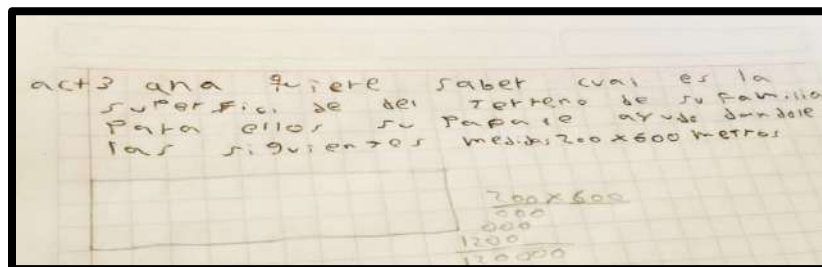 act3 ana quiere saber cual es la
superfici de del terreno de su familia
para ellos su papa le ayudo dandole
las siguientes medidas 200 x 600 metros
200 x 600
000
000
1200
120000